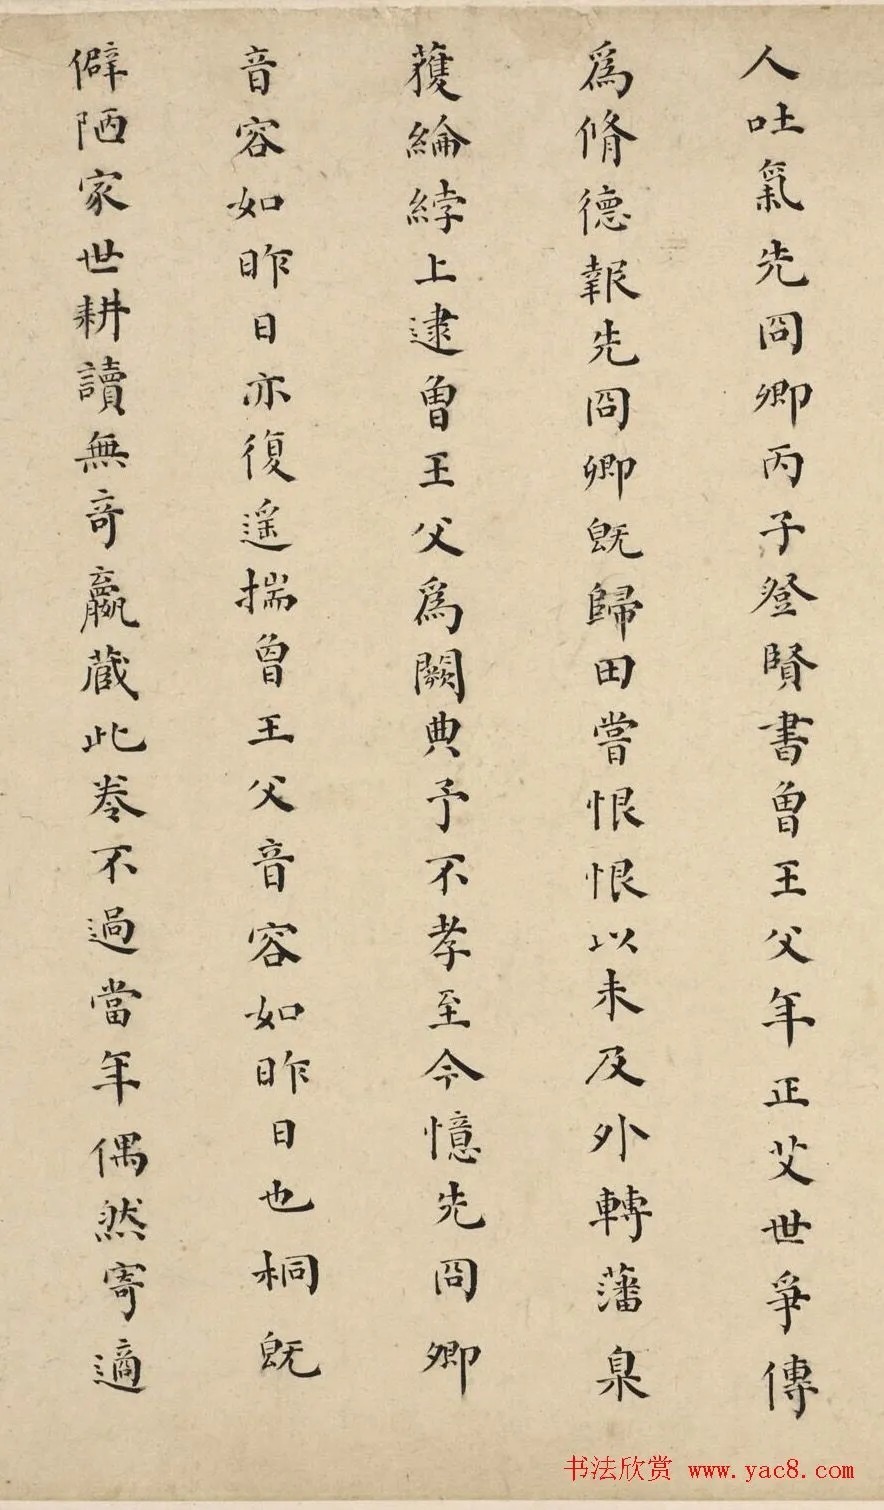 人吐氣先冏卿丙子登賢書曾王父年正艾世爭傳
爲脩德報先冏卿既歸田嘗恨恨以未及外轉藩臬
獲綸綍上逮曾王父爲闕典予不孝至今憶先冏卿
音容如昨日亦復遥揣曾王父音容如昨日也桐既
僻陋家世耕讀無奇嬴蔵此卷不過當年偶然寄適
书法欣赏 www.yac8.com